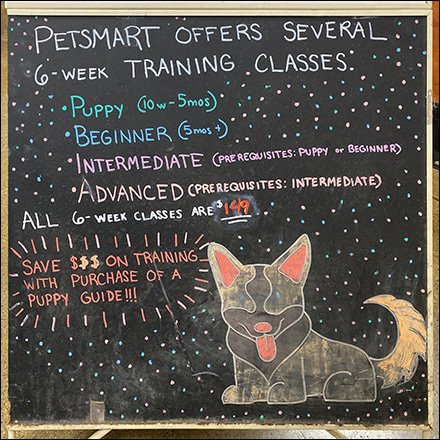 PETSMART OFFERS SEVERAL
6-WEEK TRAINING CLASSES:
• PUPPY (10w-5mos)
• BEGINNER (5mos+)
• INTERMEDIATE (PREREQUISITES: PUPPY or BEGINNER)
• ADVANCED (PREREQUISITES: INTERMEDIATE)
ALL 6-WEEK CLASSES ARE $149
SAVE $$$ ON TRAINING
WITH PURCHASE OF A
PUPPY GUIDE!!!